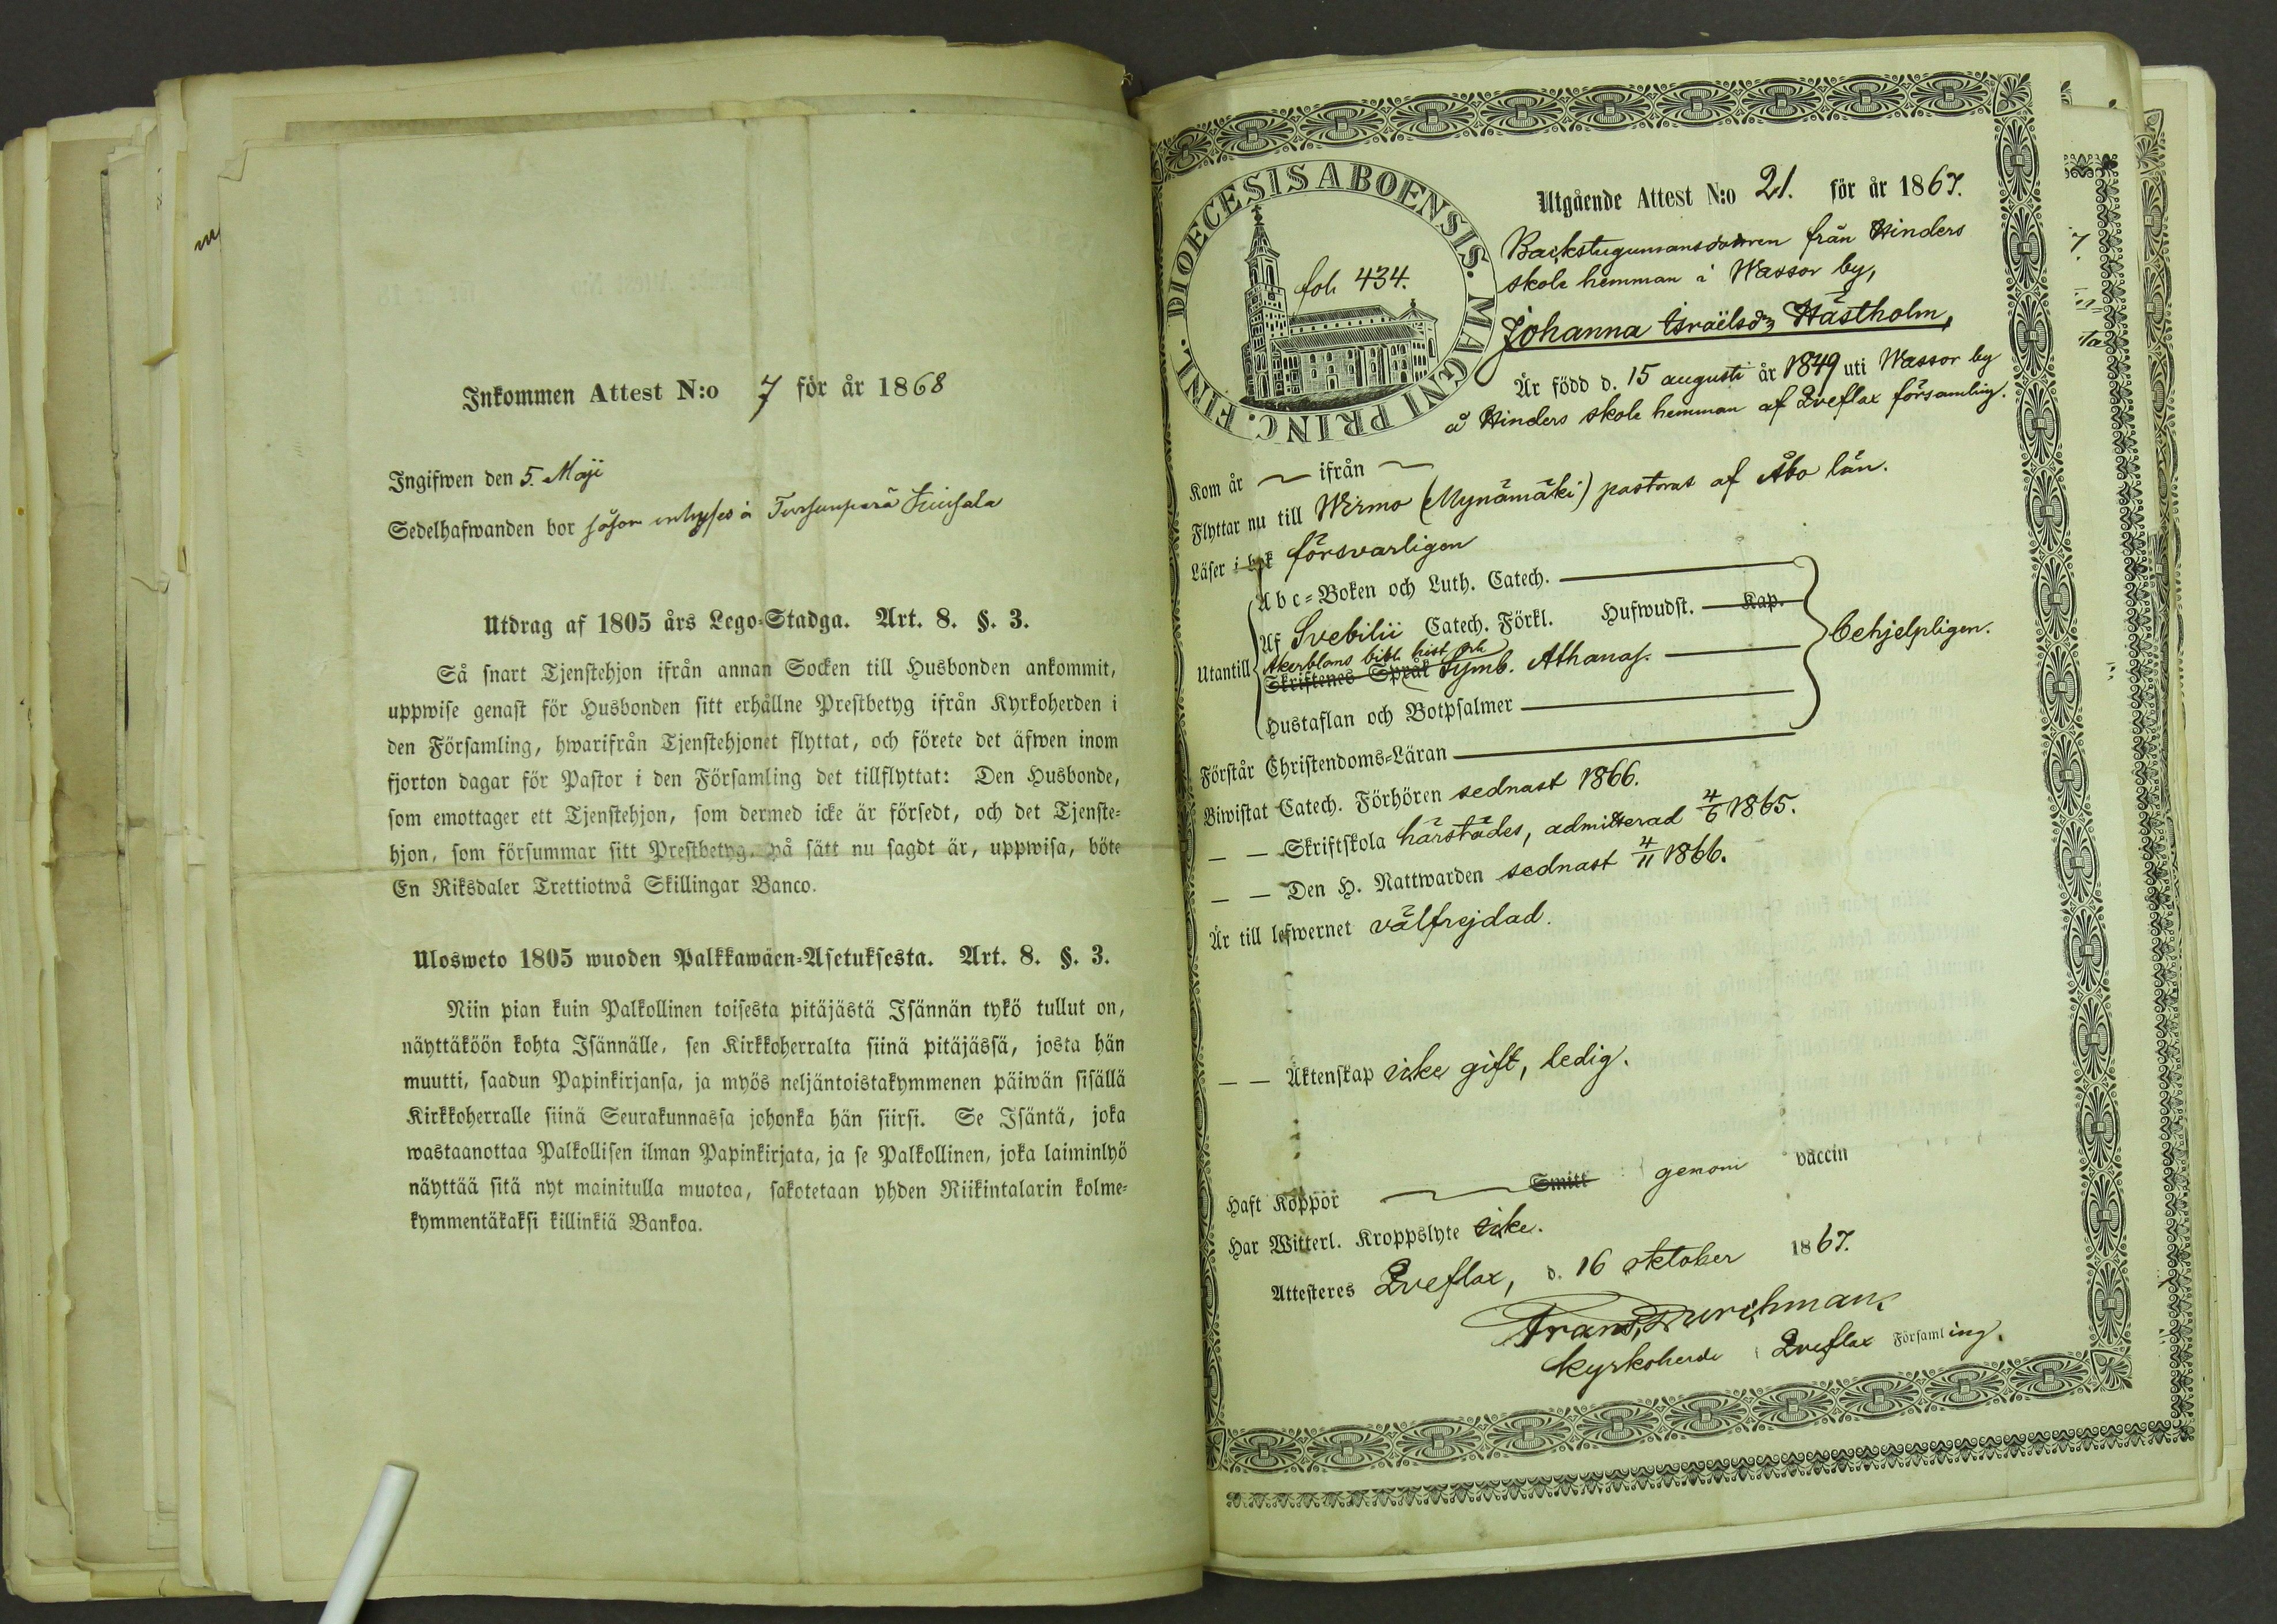 Inkommen Attest N:o 7 för år 1868
Ingifwen den 5. Maji
Sedelhafwanden bor såsom inhyses å
Utdrag af 1805 års Lego-Stadga. Art. 8. §. 3.
Så snart Tjenstehjon ifrån annan Socken till Husbonden ankommit,
uppwise genast för Husbonden sitt erhållne Prestbetyg ifrån Kyrkoherden i
den Församling, hwarifrån Tjenstehjonet flyttat, och förete det äfwen inom
fjorton dagar för Pastor i den Församling det tillflyttat: Den Husbonde,
som emottager ett Tjenstehjon, som dermed icke är försedt, och det Tjenste-
hjon, som försummar sitt Prestbetyg, på sätt nu sagdt är, uppwisa, böte
En Riksdaler Trettiotwå Skillingar Banco.
Ulosweto 1805 wuoden Palkkawäen-Asetuksesta. Art. 8. §. 3.
Niin pian kuin Palkollinen toisesta pitäjästä Isännän tykö tullut on,
näyttäköön kohta Isännälle, sen Kirkkoherralta siinä pitäjässä, josta hän
muutti, saadun Papinkirjansa, ja myös neljäntoistakymmenen päiwän sisällä
Kirkkoherralle siinä Seurakunnassa johonka hän siirsi. Se Isäntä, joka
wastaanottaa Palkollisen ilman Papinkirjata, ja se Palkollinen, joka laiminlyö
näyttää sitä nyt mainitulla muotoa, sakotetaan yhden Riikintalarin kolme-
kymmentäkaksi killinkiä Bankoa.
DIOECESIS ABOENSIS. MAGNI PRINC. FINL.
fol. 434.
Utgående Attest N:o 21. för år 1867.
Backstugumansdottren från Hinders
skole hemman i Wassor by,
Johanna Israëlsdr Hästholm,
Är född d. 15 augusti år 1849 uti Wassor by
å Hinders skole hemman af Qveflax församling.
Kom år — ifrån —
Flyttar nu till Wirmo (Mynämäki) pastorat af Åbo län.
Läser i bok försvarligen
Utantill
Abc-Boken och Luth. Catech.
Af Svebilii Catech. Förkl. Hufwudst. Kap.
Akerbloms bibl. hist och
Skriftenes Språk Symb. Athanas.
Hustaflan och Botpsalmer
behjelpligen.
Förstår Christendoms-Läran
Biwistat Catech. Förhören sednast 1866.
— — Skriftskola härstädes, admitterad 4/6 1865.
— — Den H. Nattwarden sednast 4/11 1866.
Är till lefwernet välfrejdad.
— — Äktenskap icke gift, ledig.
Haft Koppor — Smitt genom vaccin
Har Witterl. Kroppslyte icke.
Attesteres Qveflax, d. 16 oktober 1867.
Frans Durchman.
kyrkoherde i Qveflax Församling.